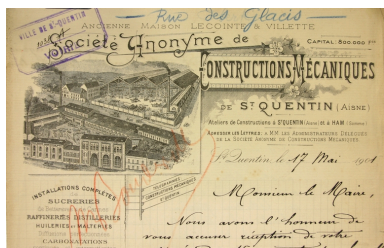 Rue des Glacis
VILLE DE ST QUENTIN
ANCIENNE MAISON LECOINTE & VILLETTE
Société Anonyme de
CAPITAL: 800.000 frs
CONSTRUCTIONS MÉCANIQUES
DE ST QUENTIN (AISNE)
Ateliers de Constructions à ST QUENTIN (Aisne) et à HAM (Somme)
ADRESSER LES LETTRES, À MM. LES ADMINISTRATEURS DÉLÉGUÉS
DE LA SOCIÉTÉ ANONYME DE CONSTRUCTIONS MÉCANIQUES
St Quentin, le 17 Mai 1901
INSTALLATIONS COMPLÈTES
SUCRERIES
RAFFINERIES DISTILLERIES
HUILERIES et MALTERIES
CARBONATATIONS
TÉLÉGRAMMES
CONSTRUCTIONS MÉCANIQUES
ST QUENTIN
Monsieur le Maire,
Nous avons l'honneur de
vous accuser réception de votre